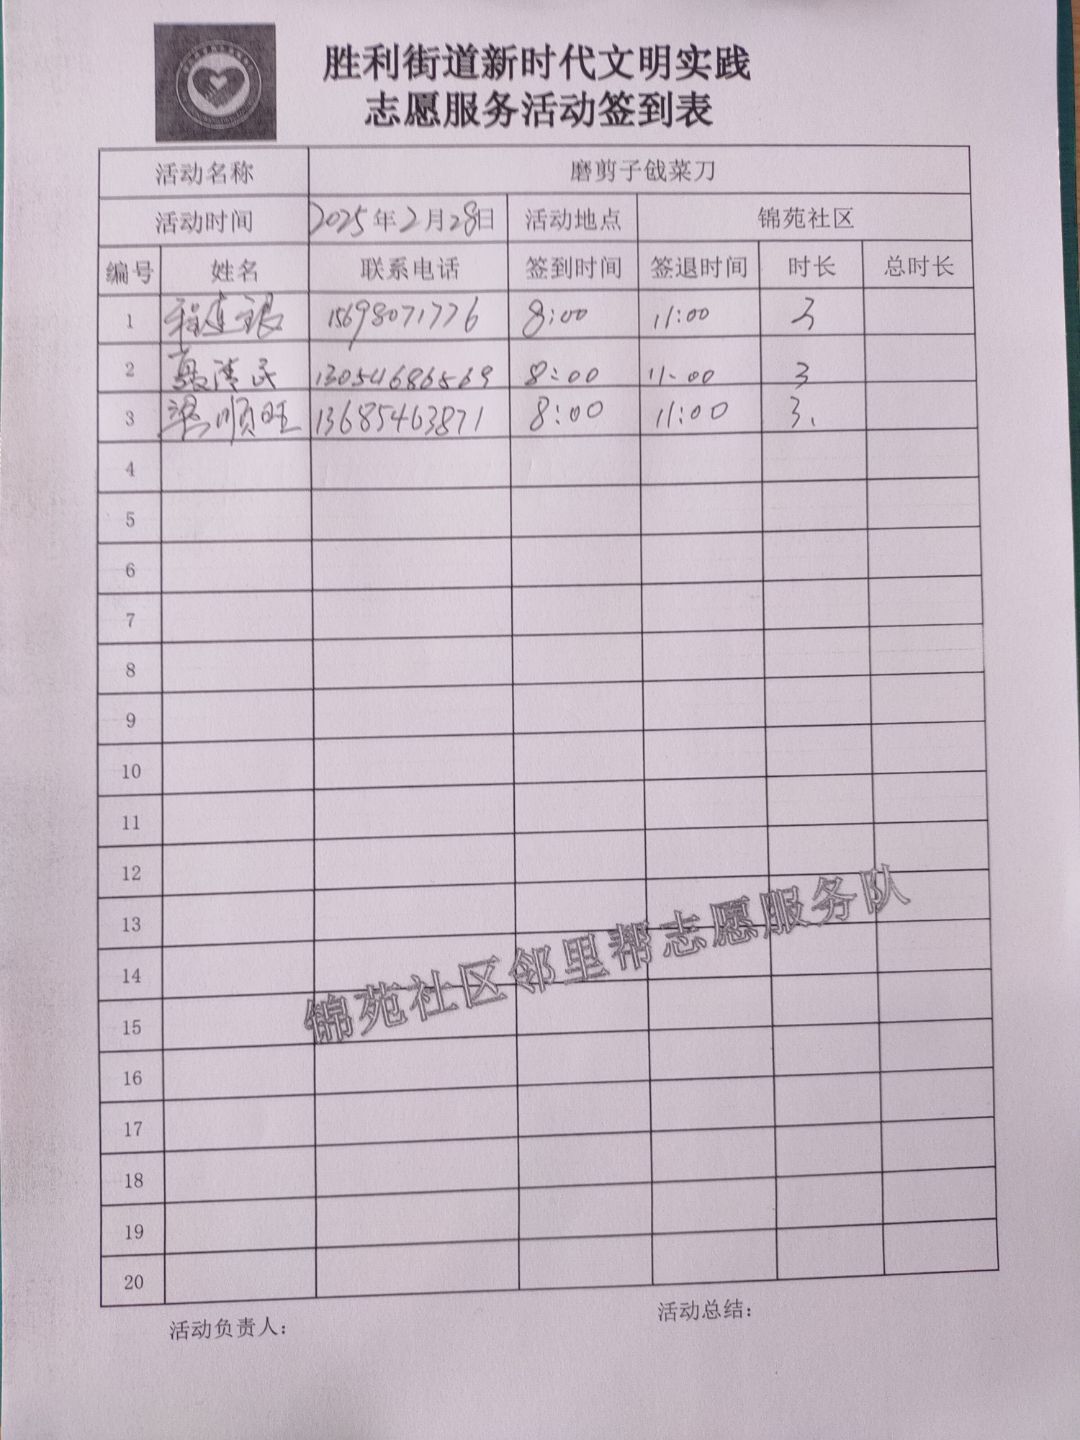 胜利街道新时代文明实践
志愿服务活动签到表
活动名称 磨剪子戗菜刀
活动时间 2025年2月28日 活动地点 锦苑社区
编号 姓名 联系电话 签到时间 签退时间 时长 总时长
1 程建银 15698071776 8:00 11:00 3
2 聂清民 13054686569 8:00 11:00 3
3 梁顺旺 13685463871 8:00 11:00 3.
4
5
6
7
8
9
10
11
12
13
14
15
16
17
18
19
20
锦苑社区邻里帮志愿服务队
活动负责人: 活动总结: